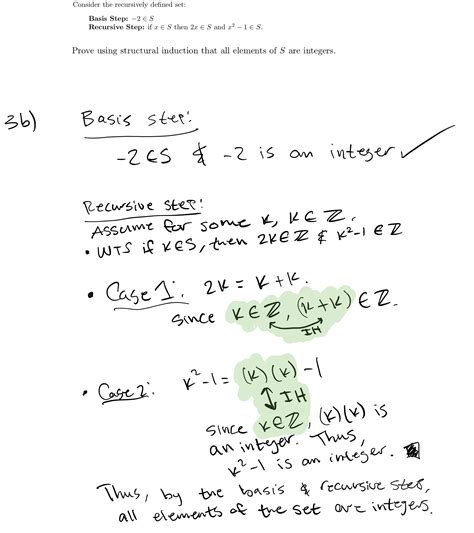 Consider the recursively defined set:
Basis Step: −2 ∈ S
Recursive Step: if x ∈ S then 2x ∈ S and x² − 1 ∈ S.
Prove using structural induction that all elements of S are integers.
3b) Basis step:
-2 ∈ S & -2 is an integer ✓
Recursive step:
Assume for some k, k ∈ ℤ.
• WTS if k ∈ S, then 2k ∈ ℤ & k²-1 ∈ ℤ
• Case 1: 2k = k + k.
since k ∈ ℤ, (k + k) ∈ ℤ.
IH
• Case 2: k²-1 = (k)(k) - 1
↕ IH
since k ∈ ℤ, (k)(k) is
an integer. Thus,
k²-1 is an integer.
Thus, by the basis & recursive step,
all elements of the set are integers.